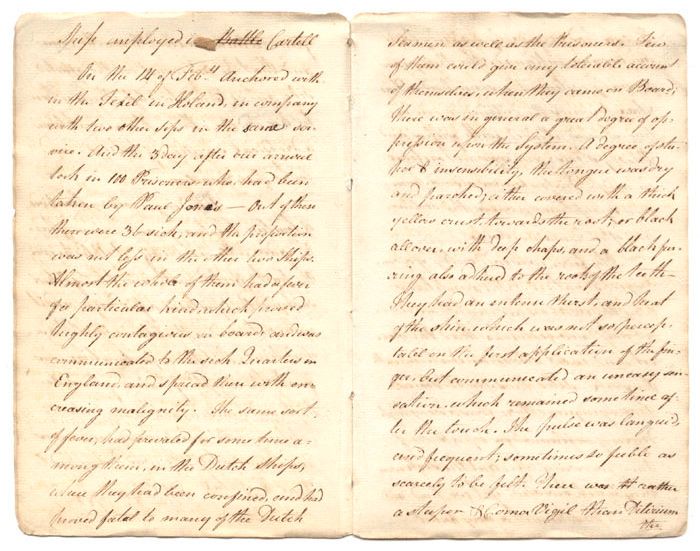 Ship employed in Battle Cartell
On the 14 of Feb.ry Anchored with
in the Texil in Holand, in company
with two other ships in the same ser
vice. And the 3 day after our arrival
took in 100 Prisoners who had been
taken by Paul Jones — Out of them
there were 36 sick, and the proportion
was not less in the other two Ships.
Almost the whole of them had a fever
of a particular kind, which proved
highly contageous on board, and was
communicated to the sick Quarters in
England, and spread there with en
creasing malignity. The same sort
of fever, had prevaled for some time a-
mong them, in the Dutch Ships,
where they had been confined, and had
proved fatal to many of the Dutch
Seamen as well as the Prisoners. Few
of them could give any tolerable account
of themselves, when they came on Board;
There was in general a great degree of op-
pression upon the System. A degree of stu-
por & insensibility, the tongue was dry
and parched; either covered with a thick
yellow crust, towards the root; or black
all over, with deep chaps, and a black fur
ring also adhered to the roots of the teeth —
They had an intense thirst, and heat
of the skin, which was not so percep-
table on the first application of the fin-
ger, but communicated an uneasy sen-
sation, which remained some time af-
ter the touch. The pulse was languid,
and frequent; sometimes so feeble as
scarcely to be felt. There was rather
a stupor & Coma Vigil than Delirium
the